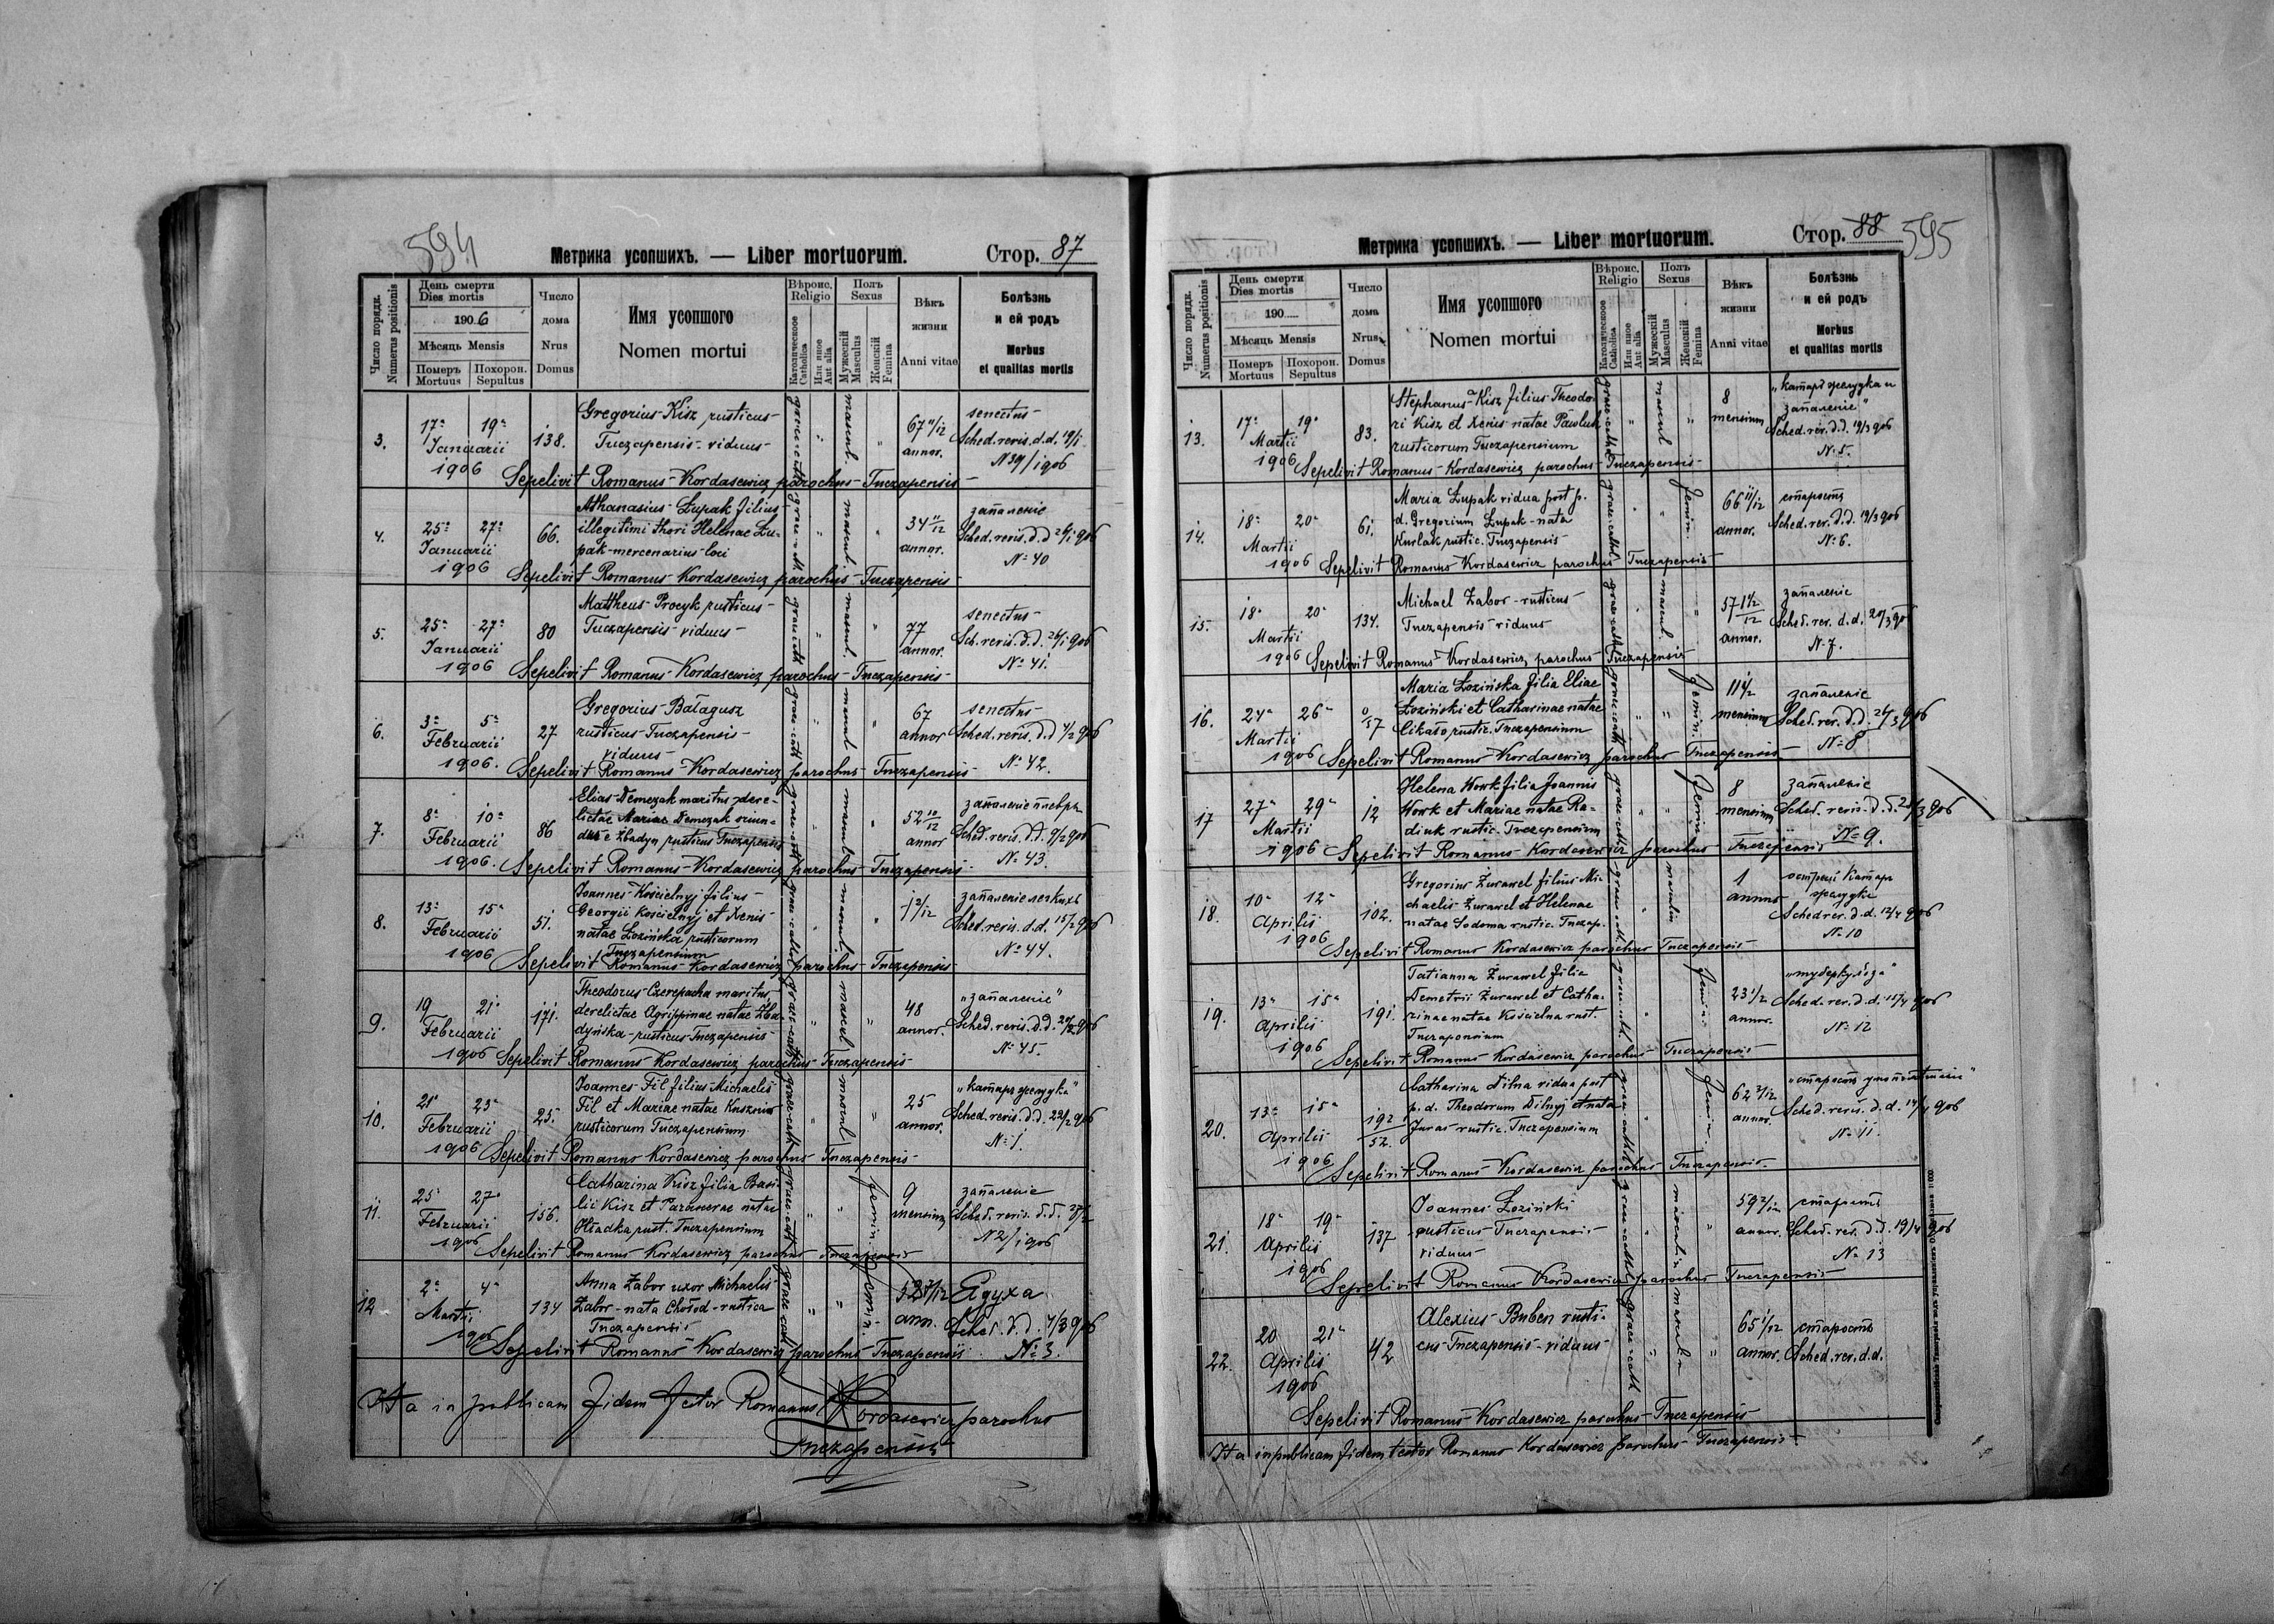 594
Метрика усопшихъ. — Liber mortuorum.
Стор. 87
Число порядк.
Numerus positionis
День смерти
Dies mortis
1906
Мѣсяць Mensis
Померъ
Mortuus
Похорон.
Sepultus
Число
дома
Nrus
Domus
Имя усопшого
Nomen mortui
Вѣроис.
Religio
Католическое
Catholica
Или иное
Aut alia
Полъ
Sexus
Мужескій
Masculus
Женскій
Femina
Вѣкъ
жизни
Anni vitae
Болѣзнь
и ей родъ
Morbus
et qualitas mortis
3. 17 19 Januarii 1906 138.
Gregorius Kisz rusticus
Tuczapensis viduus
67 11/12 annor.
senectus
Sched. revis. d.d. 19/1
N 39/1906
Sepelivit Romanus Kordasewicz parochus Tuczapensis
4. 25 27 Januarii 1906 66.
Athanasius Łupak filius
illegitimi thori Helenae Łu-
pak mercenarius loci
34 11/12 annor.
запаленіе
Sched. revis. d.d. 26/1 906
No 40
Sepelivit Romanus Kordasewicz parochus Tuczapensis
5. 25 27 Januarii 1906 80
Mattheus Procyk rusticus
Tuczapensis viduus
77 annor.
senectus
Sch. revis. d.d. 26/1 906
No 41.
Sepelivit Romanus Kordasewicz parochus Tuczapensis
6. 3 5 Februarii 1906. 27
Gregorius Bałagusz
rusticus Tuczapensis
viduus
67 annor
senectus
Sched. revis. d.d. 4/2 906
No 42.
Sepelivit Romanus Kordasewicz parochus Tuczapensis
7. 8 10 Februarii 1906. 86
Elias Demczak maritus dere-
lictae Mariae Demczak oriun-
dus e Zbadyn rusticus Tuczapensis
52 10/12 annor
запаленіе плевръ
Sched. revis. d.d. 9/2 906
No 43.
Sepelivit Romanus Kordasewicz parochus Tuczapensis
8. 13 15 Februarii 1906 51.
Joannes Kościelnyj filius
Georgii Kościelnyj et Xenis
natae Łozińska rusticorum
Tuczapensium
1 2/12
запаленіе легкихъ
Sched. revis. d.d. 15/2 906
No 44.
Sepelivit Romanus Kordasewicz parochus Tuczapensis
9. 19 21 Februarii 1906 171.
Theodorus Czerepacha maritus
derelictae Agrippinae natae Zba-
dyńska rusticus Tuczapensis
48 annor.
„запаленіе"
Sched. revis. d.d. 20/2 906
No 45.
Sepelivit Romanus Kordasewicz parochus Tuczapensis
10. 21 23 Februarii 1906 25.
Joannes Fil filius Michaelis
Fil et Mariae natae Kusznir
rusticorum Tuczapensium
25 annor.
„катаръ желудка"
Sched. revis. d.d. 22/2 906
No 1.
Sepelivit Romanus Kordasewicz parochus Tuczapensis
11. 25 27 Februarii 1906 156.
Catharina Kisz filia Basi-
lii Kisz et Parasevae natae
Hładka rust. Tuczapensium
9 mensium
запаленіе
Sched. revis. d.d. 27/2
N 2/1906
Sepelivit Romanus Kordasewicz parochus Tuczapensis
12 2 4 Martii 1906 134
Anna Zabor uxor Michaelis
Zabor nata Chołod rustica
Tuczapensis
ann.
Sched. d.d. 4/3 906
No 3.
Sepelivit Romanus Kordasewicz parochus Tuczapensis
Ita in publicam fidem testor Romanus Kordasewicz parochus
Tuczapensis
595
Метрика усопшихъ. — Liber mortuorum.
Стор. 88
Число порядк.
Numerus positionis
День смерти
Dies mortis
190
Мѣсяць Mensis
Померъ
Mortuus
Похорон.
Sepultus
Число
дома
Nrus
Domus
Имя усопшого
Nomen mortui
Вѣроис.
Religio
Католическое
Catholica
Или иное
Aut alia
Полъ
Sexus
Мужескій
Masculus
Женскій
Femina
Вѣкъ
жизни
Anni vitae
Болѣзнь
и ей родъ
Morbus
et qualitas mortis
13. 17 19 Martii 1906 83.
Stephanus Kisz filius Theodo-
ri Kisz et Xenis natae Pawluk
rusticorum Tuczapensium
8 mensium
„катаръ желудка и
запаленіе"
Sched. rer. d.d. 19/3 906
No 5.
Sepelivit Romanus Kordasewicz parochus Tuczapensis
14. 18 20 Martii 1906 61.
Maria Łupak vidua post p.
d. Gregorium Łupak nata
Kurlak rustic. Tuczapensis
66 11/12 annor.
старость
Sched. rer. d.d. 19/3 906
No 6.
Sepelivit Romanus Kordasewicz parochus Tuczapensis
15. 18 20 Martii 1906 134.
Michael Zabor rusticus
Tuczapensis viduus
annor.
запаленіе
Sched. rer. d.d. 20/3 90
N. 7.
Sepelivit Romanus Kordasewicz parochus Tuczapensis
16. 24 26 Martii 1906 0/57
Maria Łozińska filia Eliae
Łoziński et Catharinae natae
Cikało rustic. Tuczapensium
11 1/2 mensium
запаленіе
Sched. rer. d.d. 26/3 906
No 8
Sepelivit Romanus Kordasewicz parochus Tuczapensis
17 27 29 Martii 1906 12
Helena Howk filia Joannis
Howk et Mariae natae Ra-
diuk rustic. Tuczapensium
8 mensium
запаленіе
Sched. revis. d.d. 28/3 906
No 9.
Sepelivit Romanus Kordasewicz parochus Tuczapensis
18. 10 12 Aprilis 1906 102.
Gregorius Żurawel filius Mi-
chaelis Żurawel et Helenae
natae Sodoma rustic. Tuczap.
1 annus
острый катаръ
желудка
Sched rer. d.d. 12/4 906
No 10
Sepelivit Romanus Kordasewicz parochus Tuczapensis
19. 13 15 Aprilis 1906 191.
Tatianna Żurawel filia
Demetrii Żurawel et Catha-
rinae natae Kościelna rust.
Tuczapensium
23 1/2 annor.
Sched. rer. d.d. 15/4 906
No 12
Sepelivit Romanus Kordasewicz parochus Tuczapensis
20. 13 15 Aprilis 1906 192/52.
Catharina Dilna vidua post
p. d. Theodorum Dilnyj et nata
Juras rustic. Tuczapensium
62 2/12 annor.
Sched. revis. d.d. 14/4 906
No 11.
Sepelivit Romanus Kordasewicz parochus Tuczapensis
21. 18 19 Aprilis 1906 137
Joannes Łoziński
rusticus Tuczapensis
viduus
59 2/12 annor.
старость
Sched. rer. d.d. 19/4 906
No 13
Sepelivit Romanus Kordasewicz parochus Tuczapensis
22. 20 21 Aprilis 1906 42
Alexius Buben rusti-
cus Tuczapensis viduus
65 1/12 annor.
старость
Sched. rer. d.d.
Sepelivit Romanus Kordasewicz parochus Tuczapensis
Ita in publicam fidem testor Romanus Kordasewicz parochus Tuczapensis